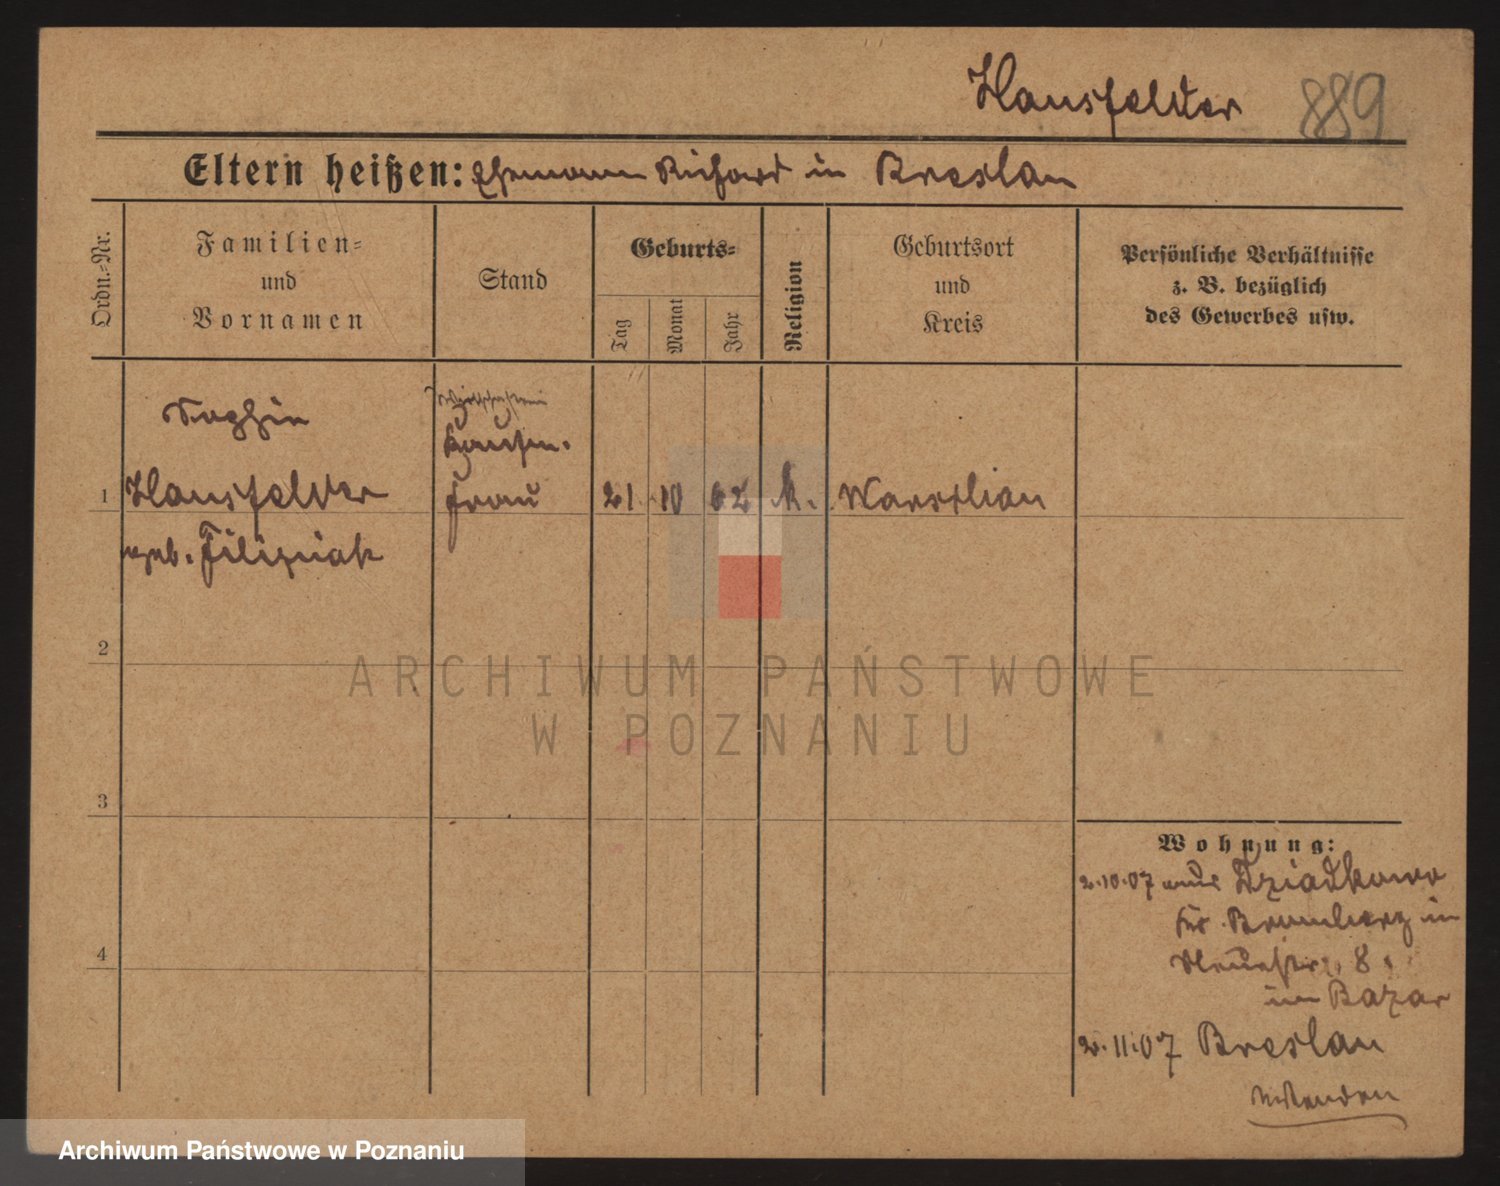 Hausfelder 889
Eltern heißen: Ehemann Richard in Breslau
Ordn.-Nr.
Familien-
und
Vornamen
Stand
Geburts-
Tag
Monat
Jahr
Religion
Geburtsort
und
Kreis
Persönliche Verhältnisse
z. B. bezüglich
des Gewerbes usw.
Sophie
Hausfelder
geb. Filipiak
Wirtschafterin
frau
1
21. 10 62 k.
2
3
4
Wohnung:
2.10.07 aus Dziadkowo
Kr. Bromberg in
Neuestr. 8.
im Bazar
2.11.07 Breslau
ARCHIWUM PAŃSTWOWE
W POZNANIU
Archiwum Państwowe w Poznaniu